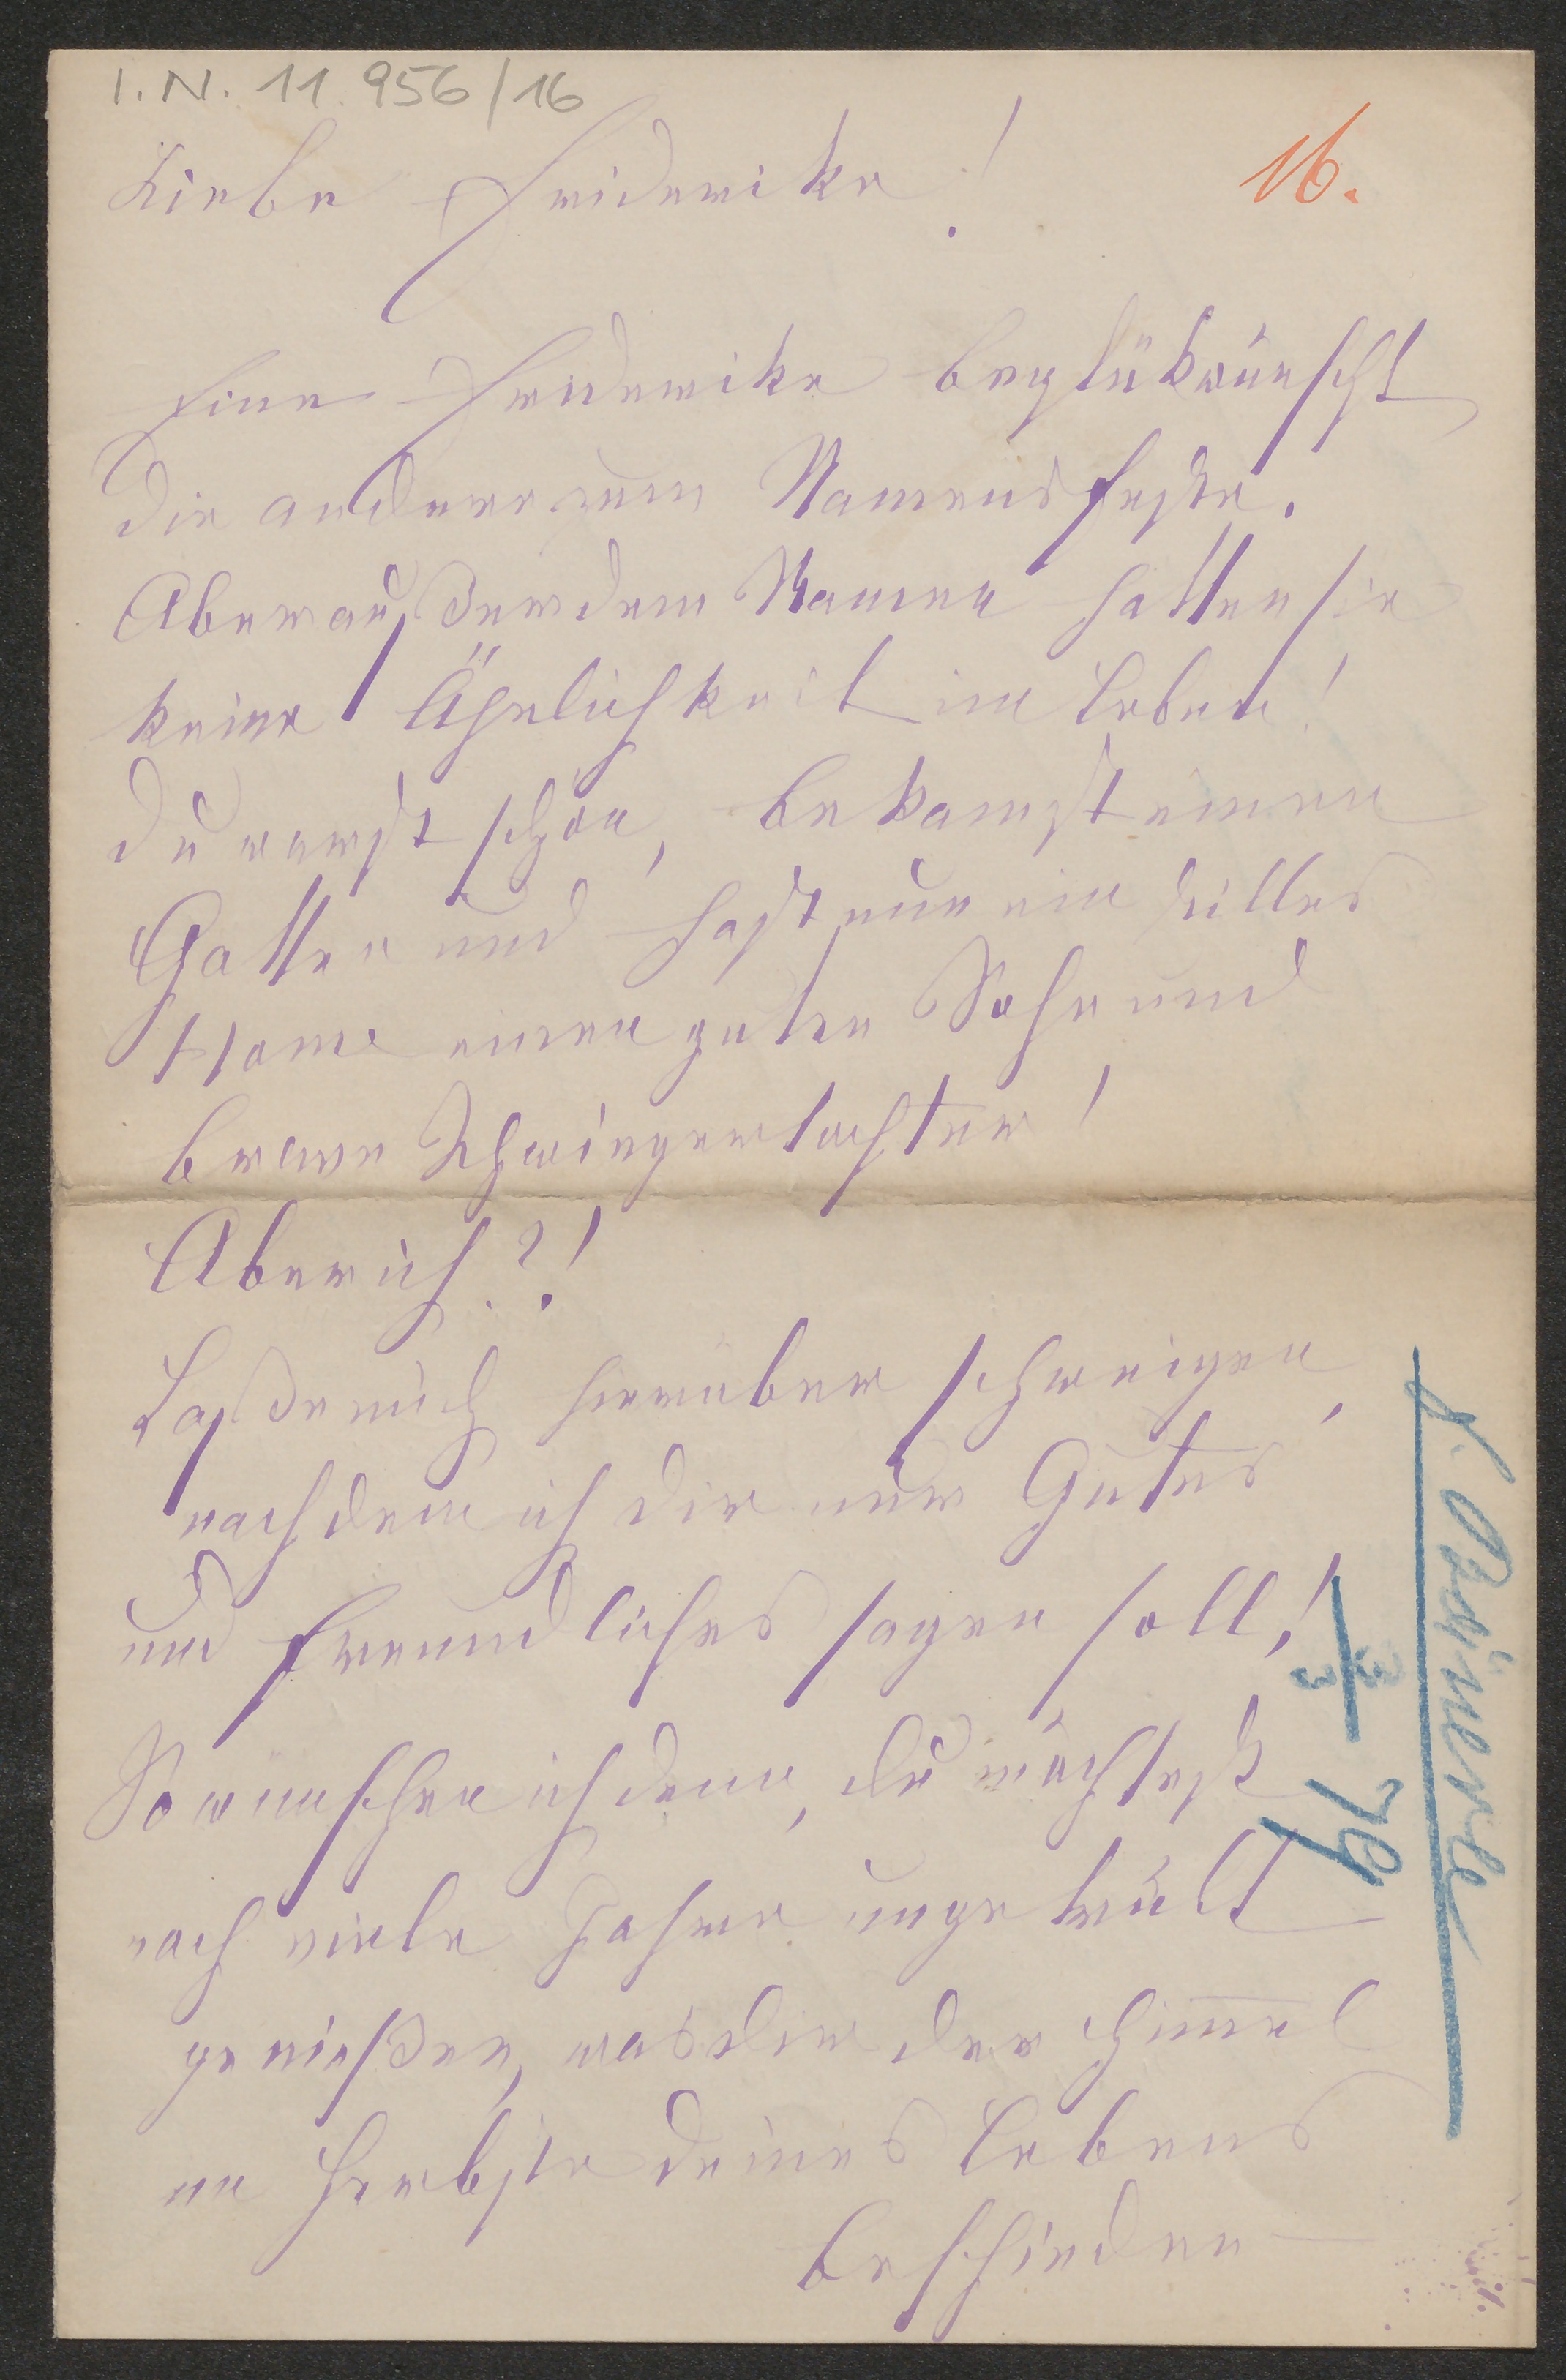 I. N. 11.956/16
16.
Liebe Friderike!
Eine Friderike beglükwünscht
die andere zum Namensfeste.
Aber außer dem Namen hatten sie
keine Ähnlichkeit im Leben!
Du warst schön, bekamst einen
Gatten und hast nun ein stilles
Home einen guten Sohn und
brave Schwiegertochter!
Aber ich?!
Laße mich hierüber schweigen,
nachdem ich dir nur Gutes
und freundliches sagen soll!
So wunsche ich denn, du möchtest
noch viele Jahre ungetrübt
genießen, was dir der Him̅el
im Herbste deines Lebens
beschieden —
3/3 79